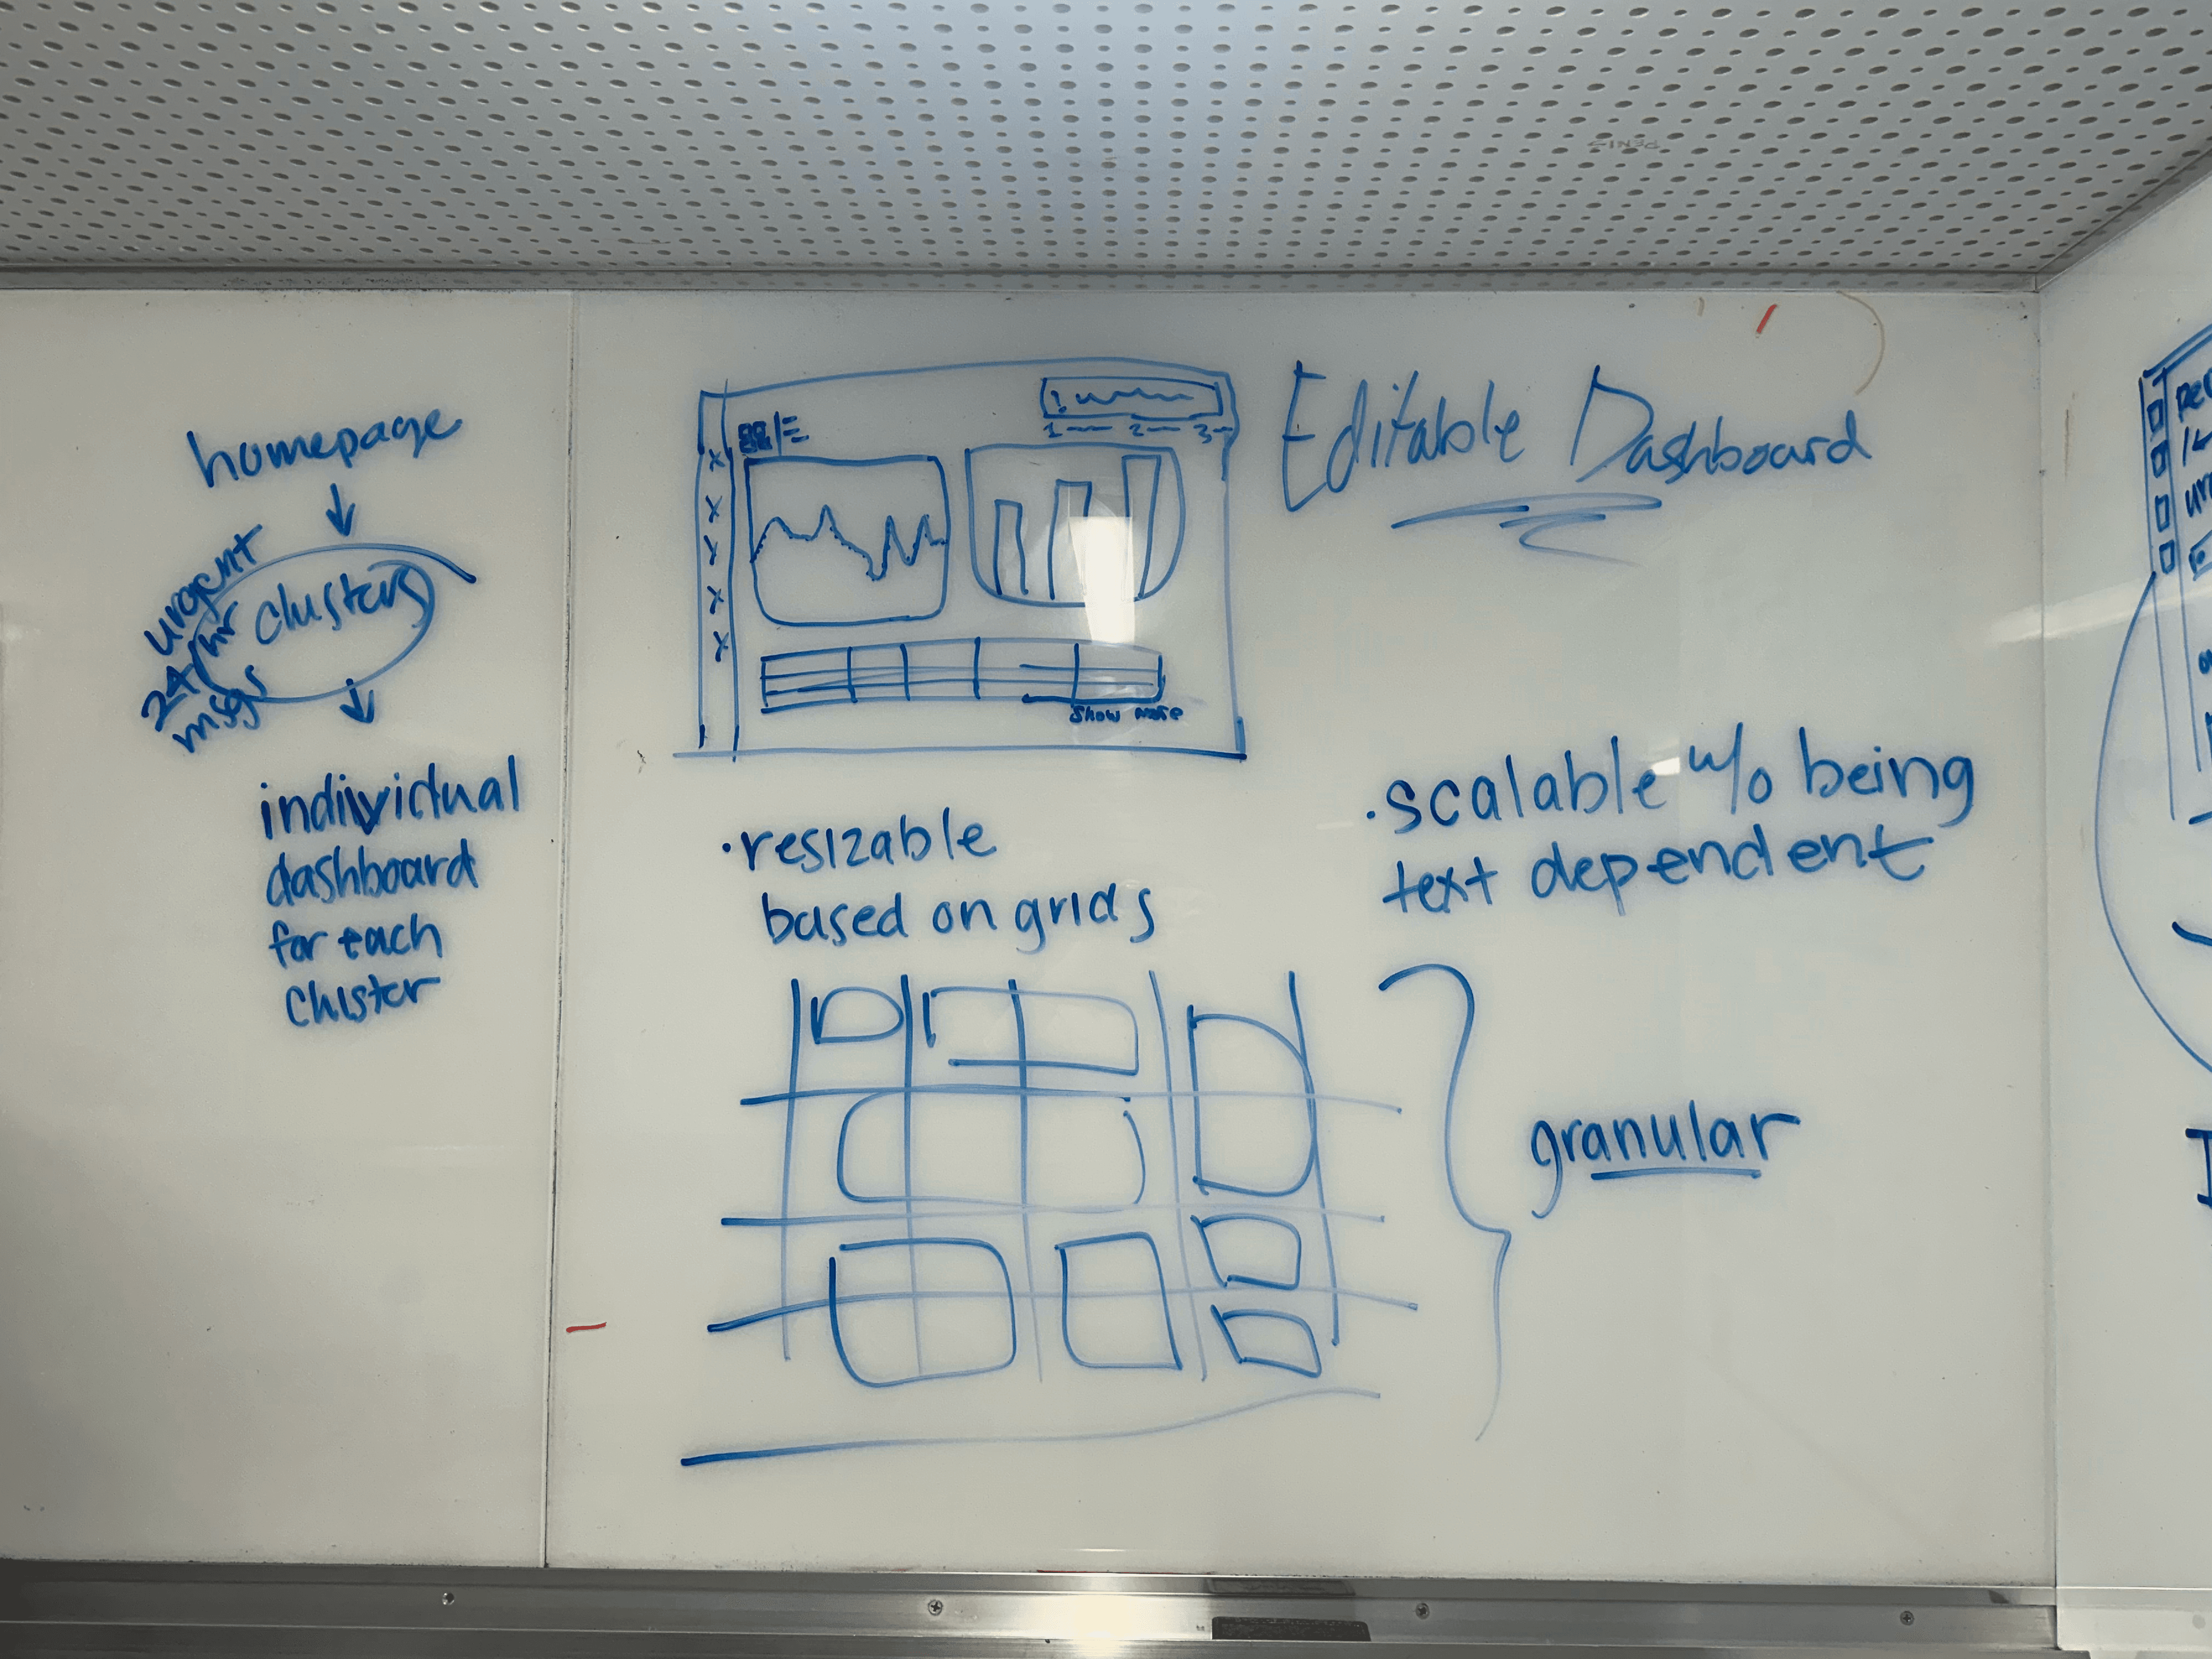 homepage
urgent
24hr
msgs
clusters
individual
dashboard
for each
cluster
1
2
3
Show more
Editable Dashboard
• resizable
based on grids
• scalable w/o being
text dependent
granular